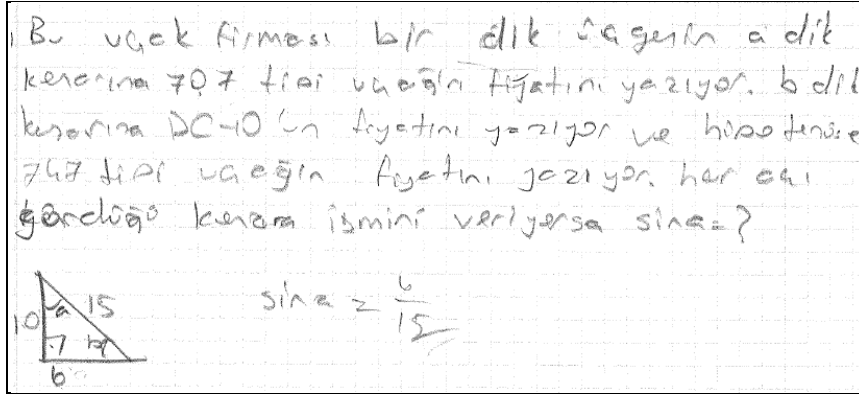 Bu uçak firması bir dik üçgenin a dik
kenarına 707 tipi uçağın fiyatını yazıyor. b dik
kenarına DC-10'un fiyatını yazıyor ve hipotenüse
747 tipi uçağın fiyatını yazıyor. her açı
gördüğü kenara ismini veriyorsa sina=?
a 15
10
6
sina = 6/15